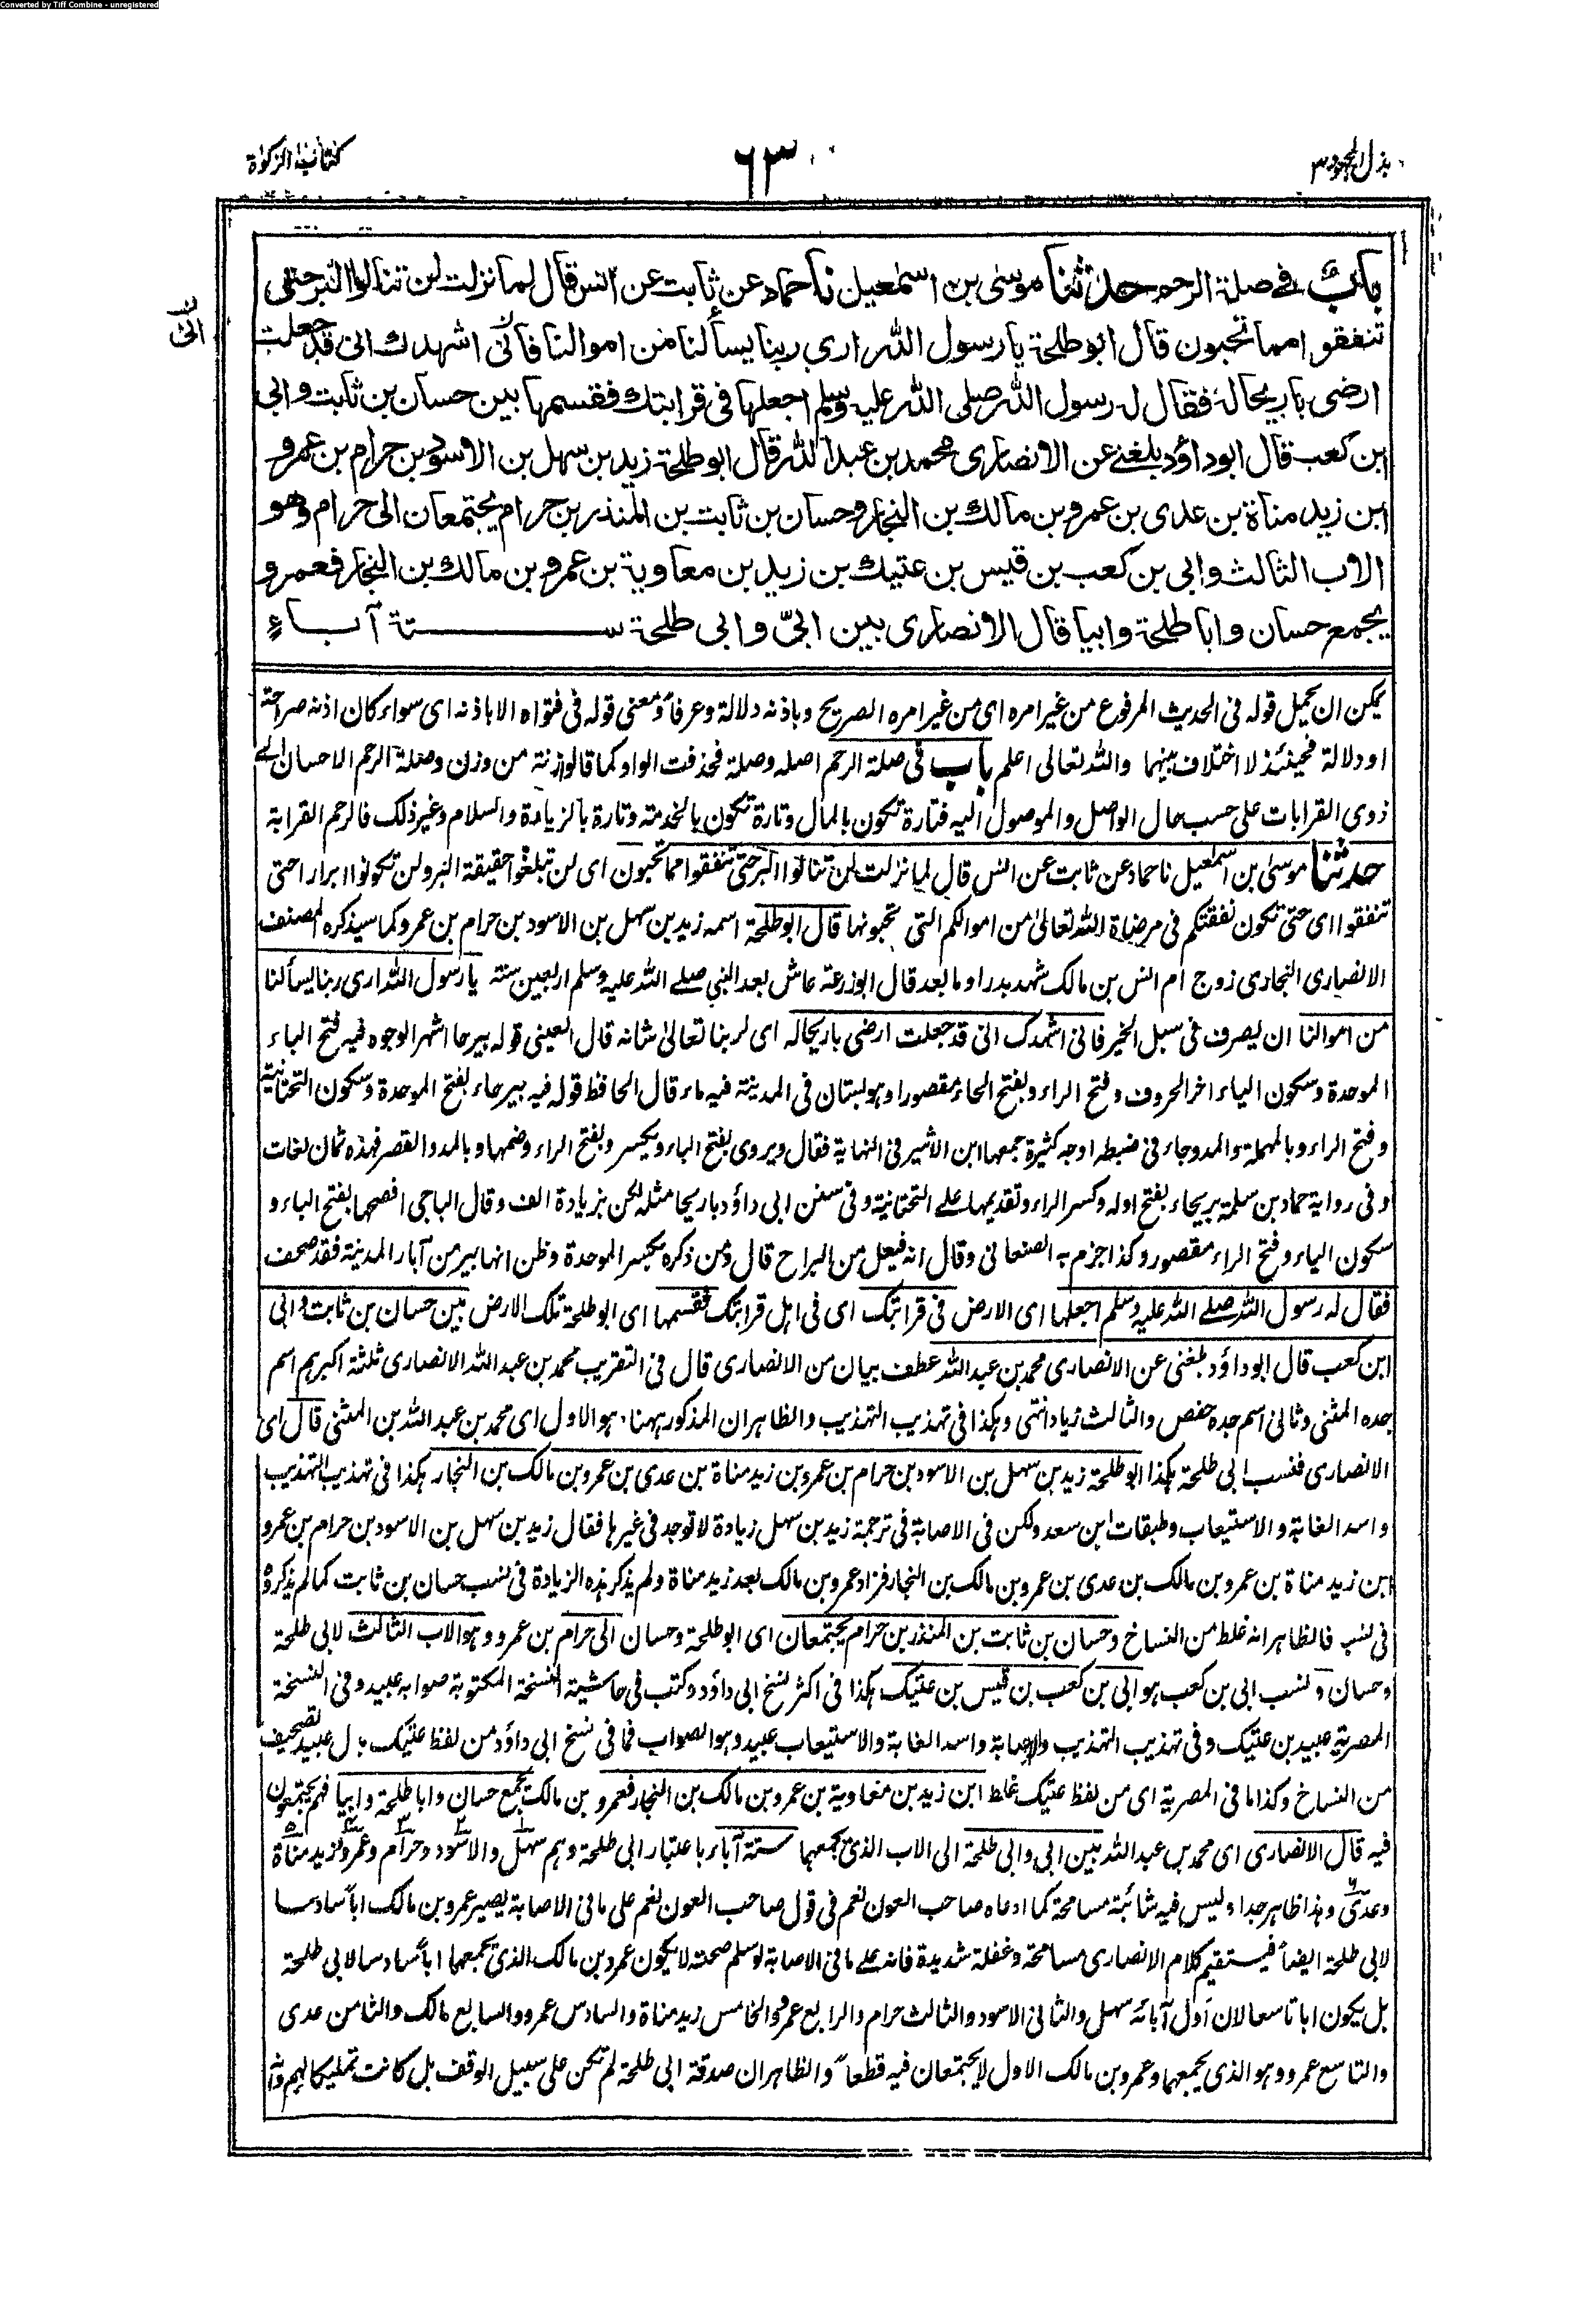 Converted by Tiff Combine - unregistered
بذل المجهود ٣
٦٣
كتاب الزكوٰة
باب في صلة الرحم حدثنا موسى بن اسمٰعيل نا حماد عن ثابت عن انس قال لما نزلت لن تنالوا البر حتى
تنفقوا مما تحبون قال ابو طلحة يا رسول الله ارى ربنا يسألنا من اموالنا فانى اشهدك انى قد جعلت
الىٰ
ارضى باريحاله فقال له رسول الله صلى الله عليه وسلم اجعلها فى قرابتك فقسمها بين حسان بن ثابت وابى
ابن كعب قال ابو داؤد بلغنى عن الانصارى محمد بن عبد الله قال ابو طلحة زيد بن سهل بن الاسود بن حرام بن عمرو
ابن زيد مناة بن عدى بن عمرو بن مالك بن النجار وحسان بن ثابت بن المنذر بن حرام يجتمعان الى حرام وهو
الاب الثالث وابى بن كعب بن قيس بن عتيك بن زيد بن معاوية بن عمرو بن مالك بن النجار فعمرو
يجمع حسان وابا طلحة وابيا قال الانصارى بين ابىّ وابى طلحة ستة آباء
يمكن ان يحمل قوله فى الحديث المرفوع من غير امره اى من غير امره الصريح وباذنه دلالة وعرفا ومعنى قوله فى فتواه الا باذنه اى سواء كان اذنه صراحة
او دلالة فحينئذ لا اختلاف بينهما والله تعالى اعلم باب فى صلة الرحم اصله وصلة فحذفت الواو كما قالوا زنة من وزن وصلة الرحم الاحسان الے
ذوى القرابات على حسب حال الواصل والموصول اليه فتارة تكون بالمال وتارة تكون بالخدمة وتارة بالزيادة والسلام وغير ذلك فالرحم القرابة
حدثنا موسىٰ بن اسمٰعيل نا حماد عن ثابت عن انس قال لما نزلت لن تنالوا البر حتى تنفقوا مما تحبون اى لن تبلغوا حقيقة البر ولن تكونوا ابرارا حتى
تنفقوا اى حتى تكون نفقتكم فى مرضاة الله تعالىٰ من اموالكم التى تحبونها قال ابو طلحة اسمه زيد بن سهل بن الاسود بن حرام بن عمرو كما سيذكره المصنف
الانصارى النجارى زوج ام انس بن مالك شهد بدرا وما بعد قال ابو زرعة عاش بعد النبى صلے الله عليه وسلم اربعين سنة يا رسول الله ارى ربنا يسألنا
من اموالنا ان يصرف فى سبل الخير فانى اشهدك انى قد جعلت ارضى باريحاله اى لربنا تعالىٰ شانه قال العينى قوله بيرحا اشهر الوجوه فيه فتح الباء
الموحدة وسكون الياء اخر الحروف وفتح الراء وبفتح الحاء مقصورا وهو بستان فى المدينة فيه ماء قال الحافظ قوله فيه بيرحاء بفتح الموحدة وسكون التحتانية
وفتح الراء وبالمهملة والمد وجاء فى ضبطه اوجه كثيرة جمعها ابن الأثير فى النهاية فقال ويروى بفتح الباء وبكسر وبفتح الراء وضمها وبالمد والقصر فهذه ثمان لغات
وفى رواية حماد بن سلمة بريحاء بفتح اوله وكسر الراء وتقديمها على التحتانية وفى سنن ابى داؤد باريحا مثله لكن بزيادة الف وقال الباجى افصحها بفتح الباء و
سكون الياء وفتح الراء مقصور وكذا جزم به الصنعانى وقال انه فيعل من البراح قال ومن ذكره بكسر الموحدة وظن انها بير من آبار المدينة فقد صحف
فقال له رسول الله صلے الله عليه وسلم اجعلها اى الارض فى قرابتك اى فى اهل قرابتك فقسمها اى ابو طلحة تلك الارض بين حسان بن ثابت وابى
ابن كعب قال ابو داؤد بلغنى عن الانصارى محمد بن عبد الله عطف بيان من الانصارى قال فى التقريب محمد بن عبد الله الانصارى ثلثة اكبرهم اسم
جده المثنى وثانى اسم جده حفص والثالث زياد انتهى وهكذا فى تهذيب التهذيب والظاهر ان المذكور ههنا هو الاول اى محمد بن عبد الله بن المثنى قال اى
الانصارى فنسب ابى طلحة هكذا ابو طلحة زيد بن سهل بن الاسود بن حرام بن عمرو بن زيد مناة بن عدى بن عمرو بن مالك بن النجار هكذا فى تهذيب التهذيب
واسد الغابة والاستيعاب وطبقات ابن سعد ولكن فى الاصابة فى ترجمة زيد بن سهل زيادة لا توجد فى غيرها فقال زيد بن سهل بن الاسود بن حرام بن عمرو
ابن زيد مناة بن عمرو بن مالك بن عدى بن عمرو بن مالك بن النجار فزاد عمرو بن مالك بعد زيد مناة ولم يذكر هذه الزيادة فى نسب حسان بن ثابت كما لم يذكروه
فى نسب فالظاهر انه غلط من النساخ وحسان بن ثابت بن المنذر بن حرام يجتمعان اى ابو طلحة وحسان الى حرام بن عمرو وهو الاب الثالث لابى طلحة
وحسان ونسب ابى بن كعب هو ابى بن كعب بن قيس بن عتيك هكذا فى اكثر نسخ ابى داؤد وكتب فى حاشية النسخة المكتوبة صوابه عبيد وفى النسخة
المصرية عبيد بن عتيك وفى تهذيب التهذيب والاصابة واسد الغابة والاستيعاب عبيد وهو الصواب فما فى نسخ ابى داؤد من لفظ عتيك بدل عبيد تصحيف
من النساخ وكذا ما فى المصرية اى من لفظ عتيك غلط ابن زيد بن معاوية بن عمرو بن مالك بن النجار فعمرو بن مالك يجمع حسان وابا طلحة وابيا فهم يجتمعون
فيه قال الانصارى اى محمد بن عبد الله بين ابى وابى طلحة الى الاب الذى يجمعهما ستة آباء باعتبار ابى طلحة وهم سهل والاسود وحرام وعمرو وزيد مناة
وعدى وهذا ظاهر جدا وليس فيه شائبة مسامحة كما ادعاه صاحب العون نعم فى قول صاحب العون نعم على ما فى الاصابة يصير عمرو بن مالك ابا سادسا
لابى طلحة ايضا فيستقيم كلام الانصارى مسامحة وغفلة شديدة فانه على ما فى الاصابة لو سلم صحته لا يكون عمرو بن مالك الذى يجمعهما ابا سادسا لابى طلحة
بل يكون ابا تاسعا لان اول آبائه سهل والثانى الاسود والثالث حرام والرابع عمرو والخامس زيد مناة والسادس عمرو والسابع مالك والثامن عدى
والتاسع عمرو وهو الذى يجمعهما وعمرو بن مالك الاول لا يجتمعان فيه قطعا والظاهر ان صدقة ابى طلحة لم تكن على سبيل الوقف بل كانت تمليكا لهم